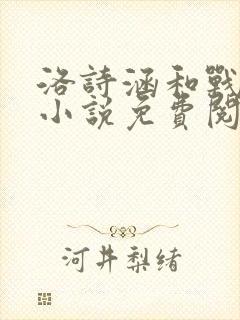 洛詩涵和戰
小說免費閱
河井梨緒